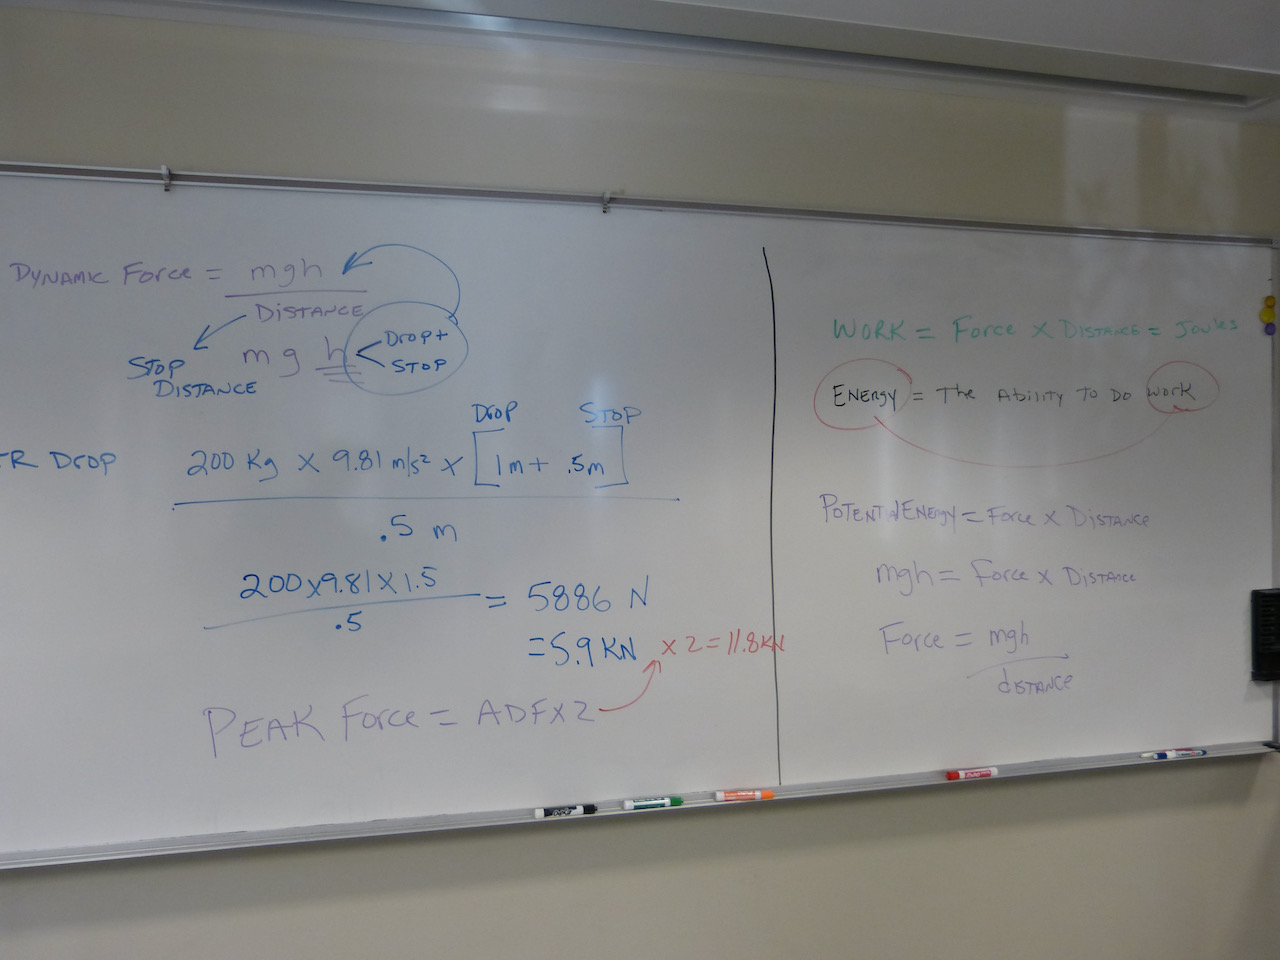 DYNAMIC Force = mgh
DISTANCE
STOP
DISTANCE
m g h
Drop+
STOP
DROP STOP
TR Drop 200 Kg x 9.81 m/s² x [1m + .5m]
.5 m
200x9.81x1.5
.5
= 5886 N
=5.9KN x 2=11.8KN
PEAK Force = ADFX2
WORK = Force X DISTANCE = Joules
ENERGY = The Ability To Do work
POTENTIAL ENERGY = Force X DISTANCE
mgh = Force X DISTANCE
Force = mgh
dISTANCE